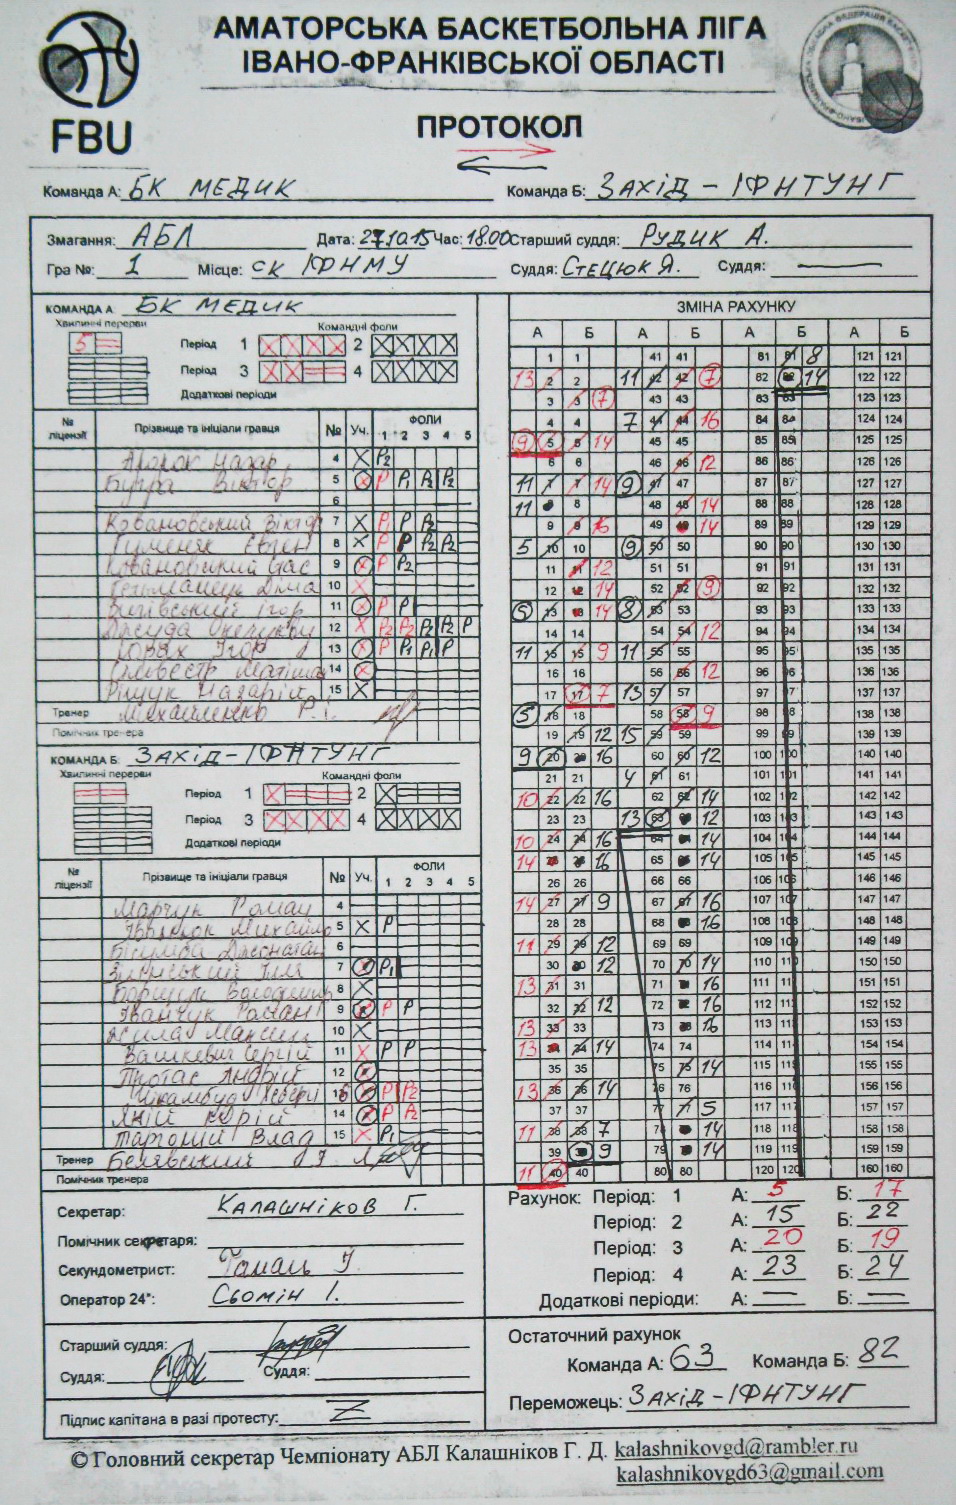 АМАТОРСЬКА БАСКЕТБОЛЬНА ЛІГА
ІВАНО-ФРАНКІВСЬКОЇ ОБЛАСТІ
FBU
ПРОТОКОЛ
Команда А: БК МЕДИК
Команда Б: ЗАХІД - ІФНТУНГ
Змагання: АБЛ Дата: 27.10.15 Час: 18.00 Старший суддя: РУДИК А.
Гра №: 1 Місце: СК ІФНМУ Суддя: СТЕЦЮК Я. Суддя:
КОМАНДА А: БК МЕДИК
Хвилинні перерви Командні фоли
Період 1 2
Період 3 4
Додаткові періоди
№ ліцензії Прізвище та ініціали гравця № Уч. ФОЛИ
1 2 3 4 5
Назар 4 X P2
Віктор 5 X P P1 P2 P2
6
Ковановський Віктор 7 X P1 P P2
Гуменяк Євген 8 X P P P2 P2
Ковановський 9 X P P2
Діма 10 X
Ігор 11 X P P
12 X P2 P2 P2 P2 P
Ігор 13 X P P1 P1 P
14 X
Назарій 15 X
Тренер Михайленко Р.
Помічник тренера
КОМАНДА Б: ЗАХІД-ІФНТУНГ
Хвилинні перерви Командні фоли
Період 1 2
Період 3 4
Додаткові періоди
№ ліцензії Прізвище та ініціали гравця № Уч. ФОЛИ
1 2 3 4 5
Марчук Роман 4
Михайло 5 X P
Джонатан 6
7 X P1
Володимир 8 X
Іванчук Роман 9 X P P
Максим 10 X
Вашкевич Сергій 11 X P P
Протас Андрій 12 X
13 X P P2
Юрій 14 X P P2
Влад 15 X P1
Тренер Белявський
Помічник тренера
ЗМІНА РАХУНКУ
А Б А Б А Б А Б
1 1 41 41 81 81 8 121 121
13 2 2 11 42 42 7 82 82 14 122 122
3 3 7 43 43 83 83 123 123
4 4 7 44 44 16 84 84 124 124
9 5 5 14 45 45 85 85 125 125
6 6 46 46 12 86 86 126 126
11 7 7 14 9 47 47 87 87 127 127
11 8 8 48 48 14 88 88 128 128
9 9 16 49 49 14 89 89 129 129
5 10 10 9 50 50 90 90 130 130
11 11 12 51 51 91 91 131 131
12 12 14 52 52 9 92 92 132 132
5 13 13 14 8 53 53 93 93 133 133
14 14 54 54 12 94 94 134 134
11 15 15 9 11 55 55 95 95 135 135
16 16 56 56 12 96 96 136 136
17 17 7 13 57 57 97 97 137 137
5 18 18 58 58 9 98 98 138 138
19 19 12 15 59 59 99 99 139 139
9 20 20 16 60 60 12 100 100 140 140
21 21 4 61 61 101 101 141 141
10 22 22 16 62 62 14 102 102 142 142
23 23 13 63 63 12 103 103 143 143
10 24 24 16 64 64 14 104 104 144 144
14 25 25 16 65 65 14 105 105 145 145
26 26 66 66 106 106 146 146
14 27 27 9 67 67 16 107 107 147 147
28 28 68 68 16 108 108 148 148
11 29 29 12 69 69 109 109 149 149
30 30 12 70 70 14 110 110 150 150
13 31 31 71 71 16 111 111 151 151
32 32 12 72 72 16 112 112 152 152
13 33 33 73 73 16 113 113 153 153
13 34 34 14 74 74 114 114 154 154
35 35 75 75 14 115 115 155 155
13 36 36 14 76 76 116 116 156 156
37 37 77 77 5 117 117 157 157
11 38 38 7 78 78 14 118 118 158 158
39 39 9 79 79 14 119 119 159 159
11 40 40 80 80 120 120 160 160
Секретар: КАЛАШНІКОВ Г.
Помічник секретаря:
Секундометрист:
Оператор 24": Сьомін І.
Рахунок: Період: 1 А: 5 Б: 17
Період: 2 А: 15 Б: 22
Період: 3 А: 20 Б: 19
Період: 4 А: 23 Б: 24
Додаткові періоди: А: Б:
Старший суддя:
Суддя: Суддя:
Підпис капітана в разі протесту: Z
Остаточний рахунок
Команда А: 63 Команда Б: 82
Переможець: ЗАХІД-ІФНТУНГ
© Головний секретар Чемпіонату АБЛ Калашніков Г. Д. kalashnikovgd@rambler.ru
kalashnikovgd63@gmail.com